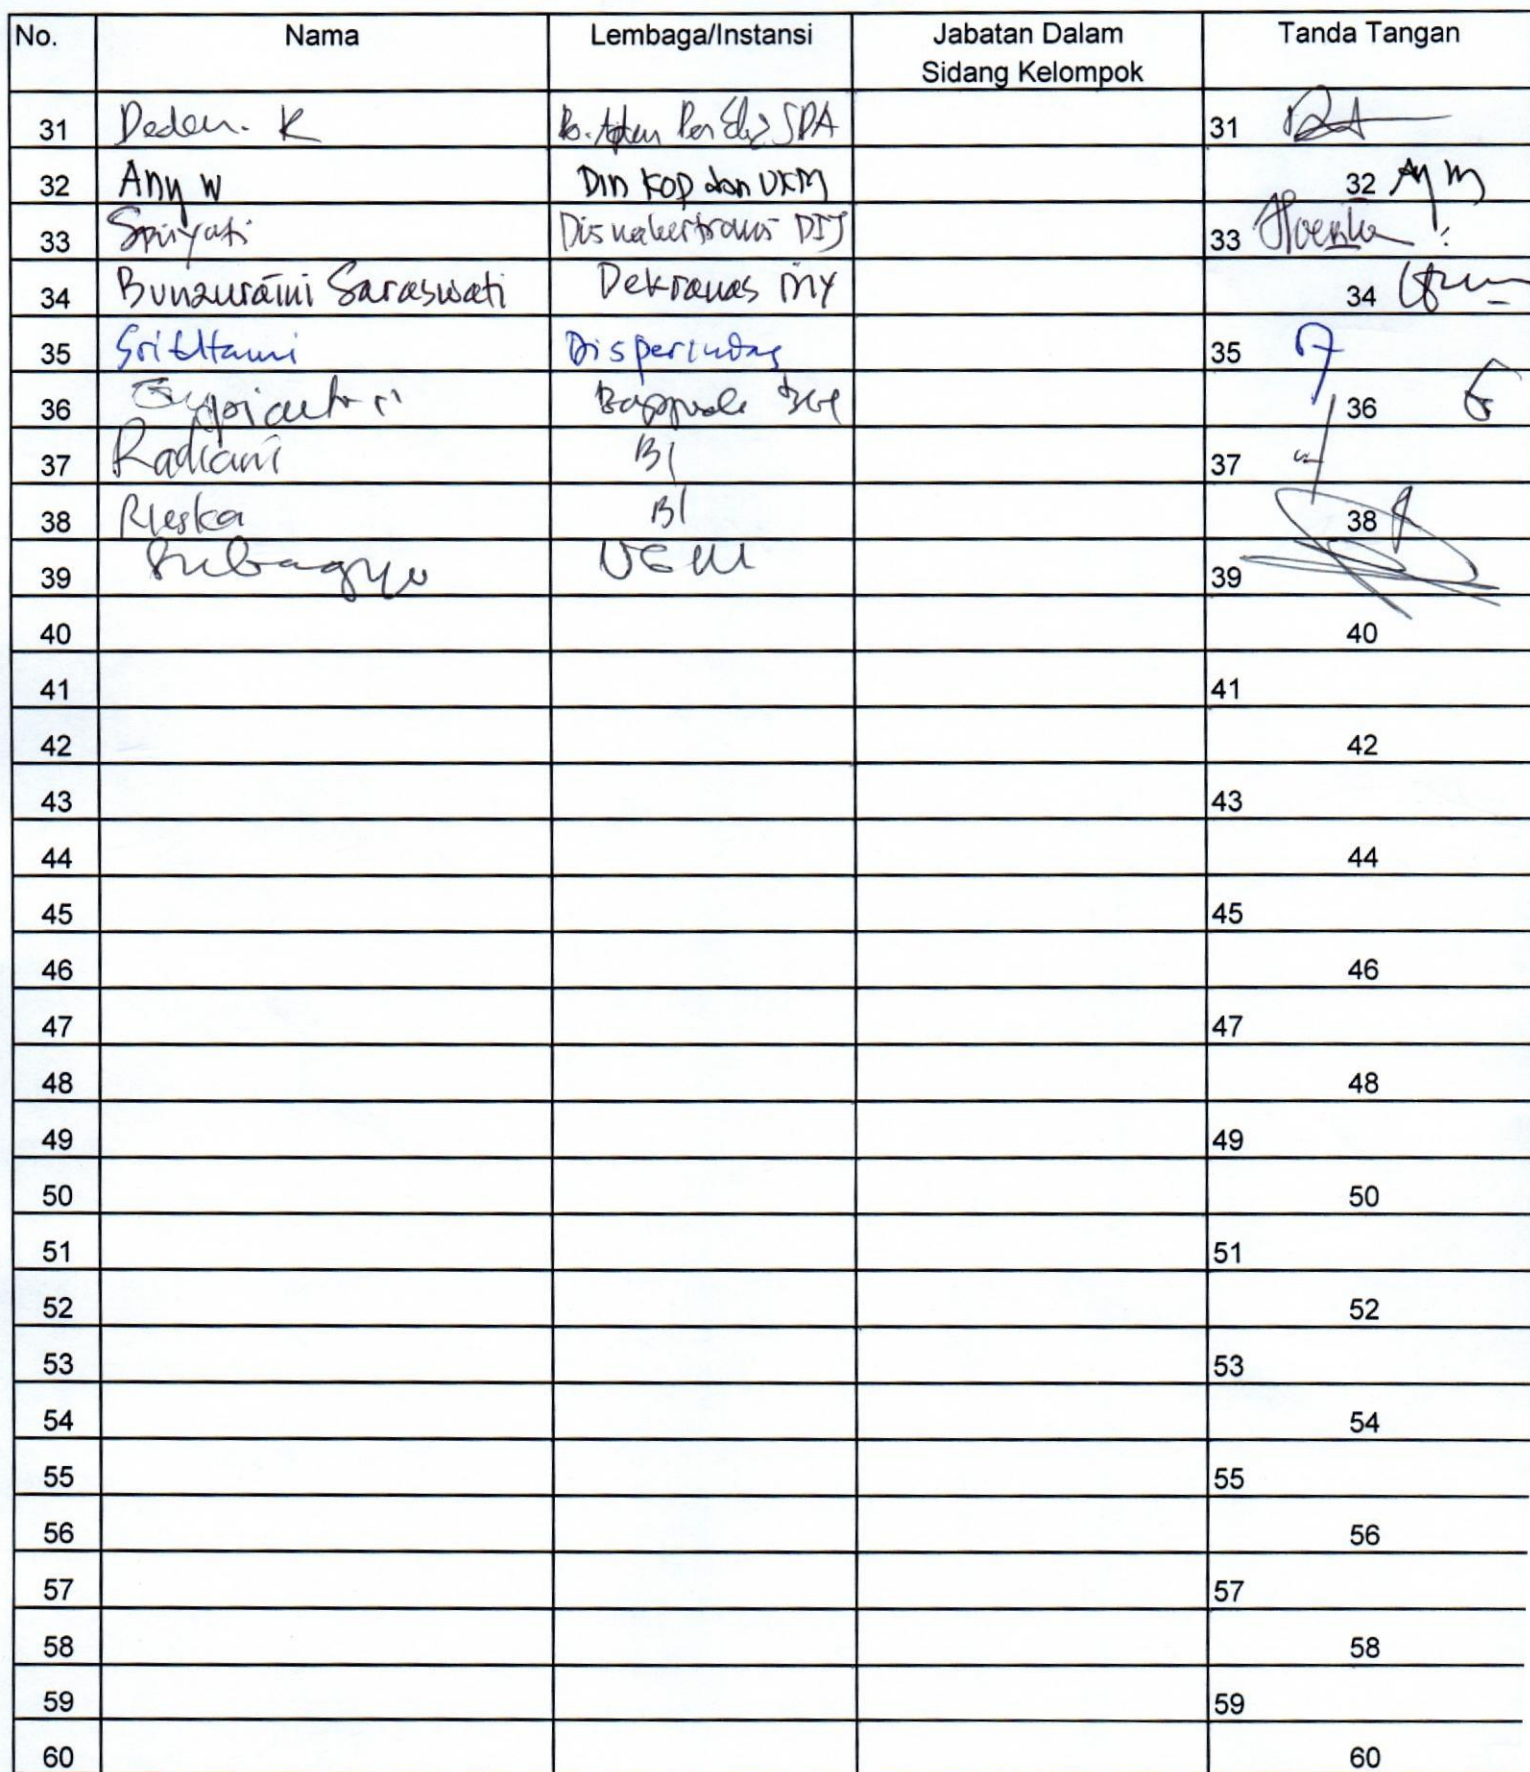 No. Nama Lembaga/Instansi Jabatan Dalam Sidang Kelompok Tanda Tangan
31 Deden. K SPA 31
32 Any W Din Kop dan UKM 32
33 Disnakertrans DIY 33
34 Saraswati Dekranas 34
35 Sri Utami Disperindag 35
36 36
37 Radiani BI 37
38 Rieska BI 38
39 Subagyo UGM 39
40 40
41 41
42 42
43 43
44 44
45 45
46 46
47 47
48 48
49 49
50 50
51 51
52 52
53 53
54 54
55 55
56 56
57 57
58 58
59 59
60 60